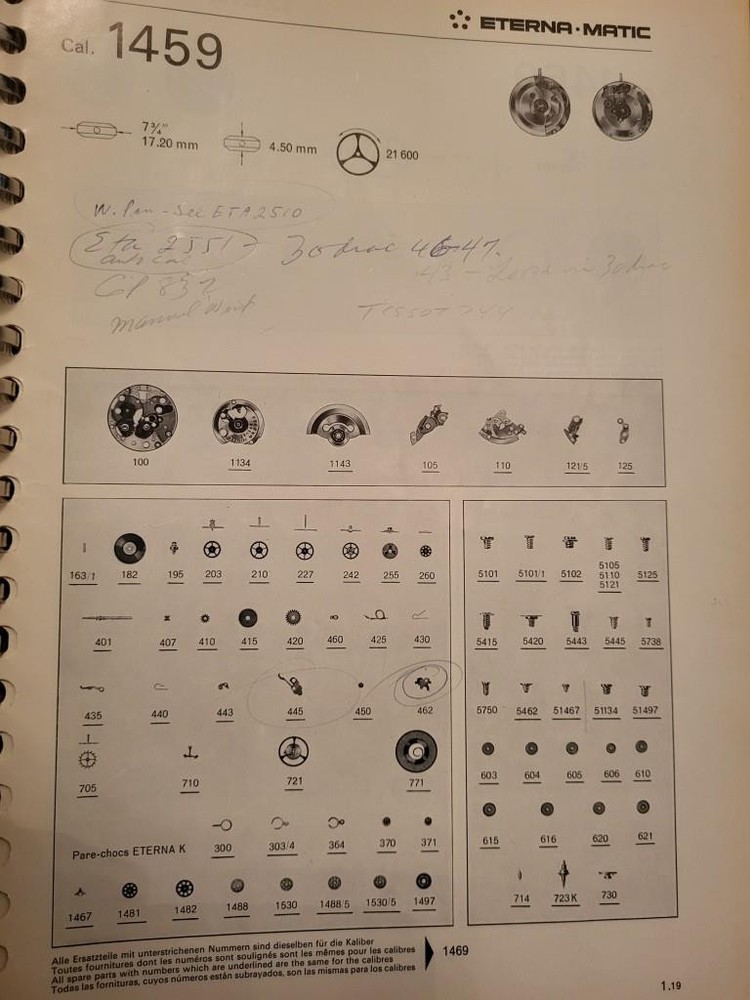 ETERNA·MATIC
Cal. 1459
7¾'''
17.20 mm
4.50 mm
21 600
W. Pan - See ETA 2510
Eta 2551 - Zodiac 46-47.
GP 832
Manual Wind
TISSOT 744
100 1134 1143 105 110 121/5 125
163/1 182 195 203 210 227 242 255 260
401 407 410 415 420 460 425 430
435 440 443 445 450 462
705 710 721 771
Pare-chocs ETERNA K 300 303/4 364 370 371
1467 1481 1482 1488 1530 1488/5 1530/5 1497
5101 5101/1 5102 5105 5125
5110
5121
5415 5420 5443 5445 5738
5750 5462 51467 51134 51497
603 604 605 606 610
615 616 620 621
714 723K 730
Alle Ersatzteile mit unterstrichenen Nummern sind dieselben für die Kaliber
Toutes fournitures dont les numéros sont soulignés sont les mêmes pour les calibres
All spare parts with numbers which are underlined are the same for the calibres
Todas las fornituras, cuyos números están subrayados, son las mismas para los calibres
1469
1.19